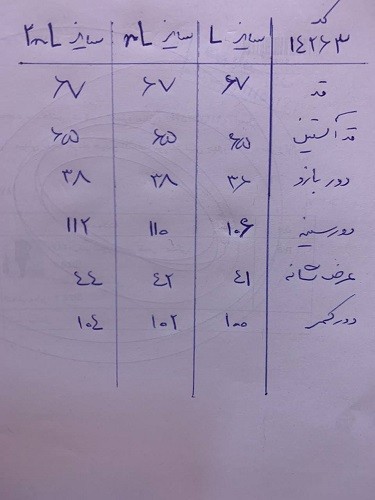 کد
۱۴۲۶۳ سایز L سایز xL سایز 2xL
قد ۶۷ ۶۷ ۶۷
قد آستین ۶۵ ۶۵ ۶۵
دور بازو ۳۶ ۳۸ ۳۸
دور سینه ۱۰۶ ۱۱۰ ۱۱۲
عرض شانه ۴۱ ۴۲ ۴۴
دور کمر ۱۰۰ ۱۰۲ ۱۰۴